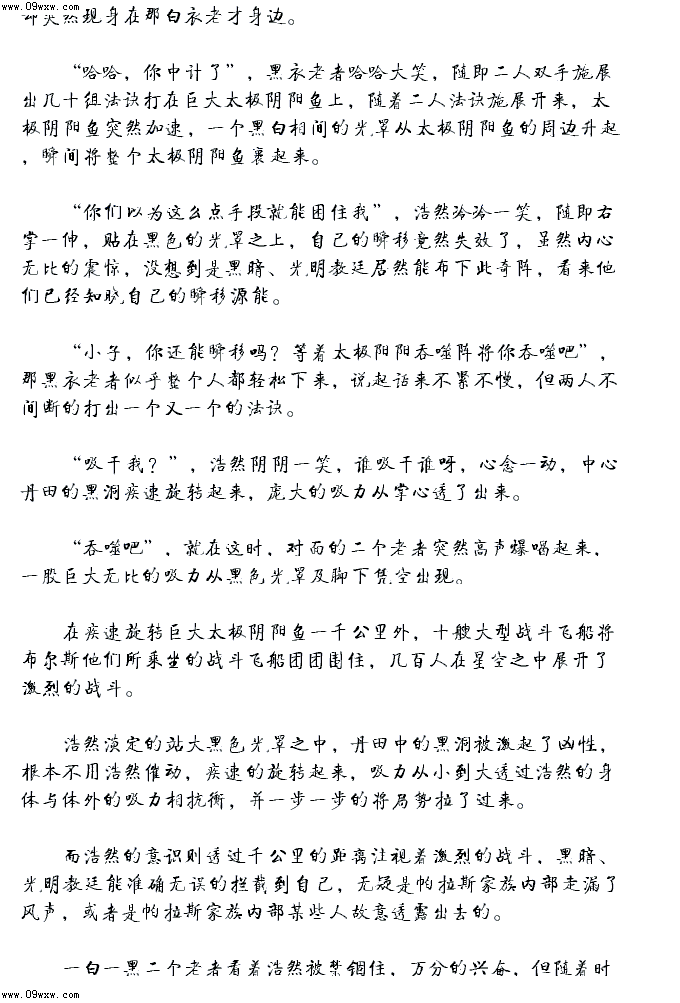 www.09wxw.com
却突然现身在那白衣老才身边。
“哈哈，你中计了”，黑衣老者哈哈大笑，随即二人双手施展
出几十组法诀打在巨大太极阴阳鱼上，随着二人法诀施展开来，太
极阴阳鱼突然加速，一个黑白相间的光罩从太极阴阳鱼的周边升起
，瞬间将整个太极阴阳鱼裹起来。
“你们以为这么点手段就能困住我”，浩然冷冷一笑，随即右
掌一伸，贴在黑色的光罩之上，自己的瞬移竟然失效了，虽然内心
无比的震惊，没想到是黑暗、光明教廷居然能布下此奇阵，看来他
们已经知晓自己的瞬移源能。
“小子，你还能瞬移吗？等着太极阳阳吞噬阵将你吞噬吧”，
那黑衣老者似乎整个人都轻松下来，说起话来不紧不慢，但两人不
间断的打出一个又一个的法诀。
“吸干我？”，浩然阴阴一笑，谁吸干谁呀，心念一动，中心
丹田的黑洞疾速旋转起来，庞大的吸力从掌心透了出来。
“吞噬吧”，就在这时，对面的二个老者突然高声爆喝起来，
一股巨大无比的吸力从黑色光罩及脚下凭空出现。
在疾速旋转巨大太极阴阳鱼一千公里外，十艘大型战斗飞船将
布尔斯他们所乘坐的战斗飞船团团围住，几百人在星空之中展开了
激烈的战斗。
浩然淡定的站大黑色光罩之中，丹田中的黑洞被激起了凶性，
根本不用浩然催动，疾速的旋转起来，吸力从小到大透过浩然的身
体与体外的吸力相抗衡，并一步一步的将局势拉了过来。
而浩然的意识则透过千公里的距离注视着激烈的战斗，黑暗、
光明教廷能准确无误的拦截到自己，无疑是帕拉斯家族内部走漏了
风声，或者是帕拉斯家族内部某些人故意透露出去的。
一白一黑二个老者看着浩然被禁锢住，万分的兴奋，但随着时
www.09wxw.com
www.09wxw.com